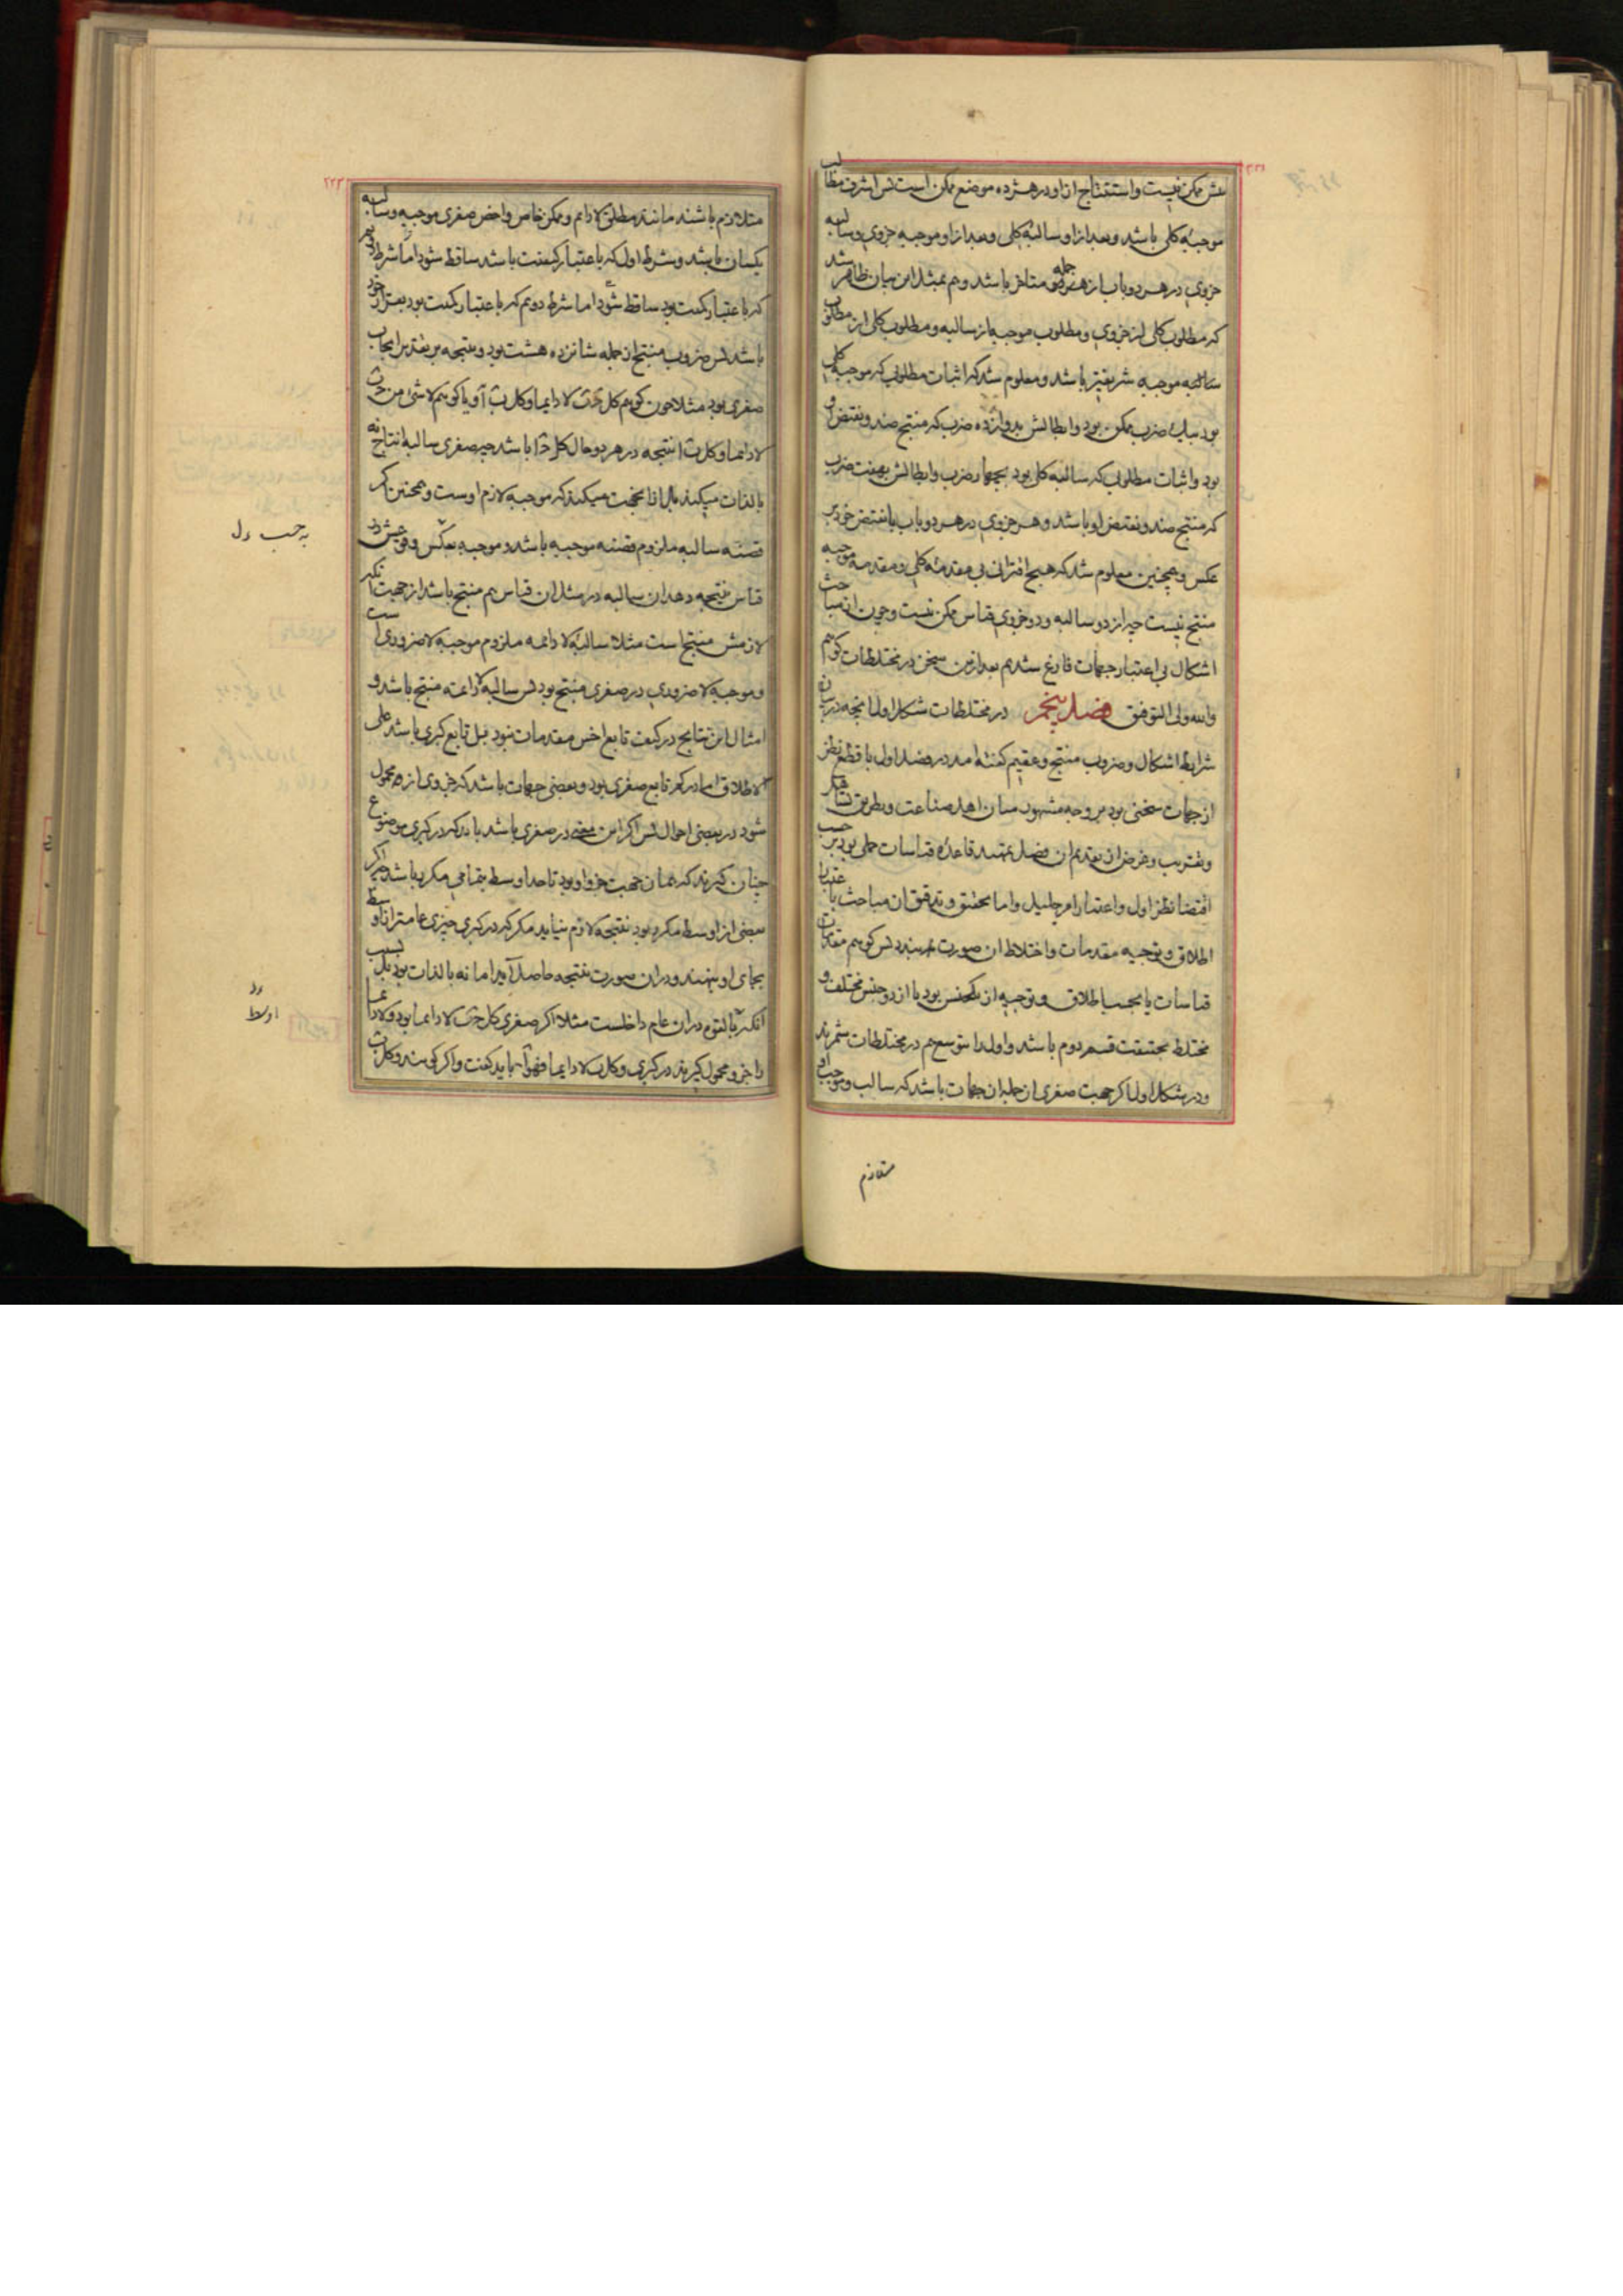 عش ممکن نیست و استنتاج از او در هشرده موضع ممکن است بس اشرف مطالب
موجبهٔ کلی باشد و بعد از او سالبهٔ کلی و بعد از او موجبه جزوی و سالبه
جزوی در هر دو باب از همه جمله متاخر باشد و هم بمثل این بیان ظاهر شد
که مطلوب کلی از جزوی و مطلوب موجبه از سالبه و مطلوب کلی از مطلوب
سالبه موجبه شریفتر باشد و معلوم شد که اثبات مطلوبی که موجبه کلی
بود بیک ضرب ممکن بود و ابطالش بدوازده ضرب که منتج ضد و نقیض او
بود و اثبات مطلوبی که سالبه کلی بود بچهار ضرب و ابطالش بهفت ضرب
که منتج ضد و نقیض او باشد و هر جزوی در هر دو باب با نقیض خود بر
عکس و همچنین معلوم شد که هیچ اقترانی بی مقدمهٔ کلی و مقدمه موجبه
منتج نیست چه از دو سالبه و دو جزوی قیاس ممکن نیست و چون از مباحث
اشکال بی اعتبار جهات فارغ شدیم بعد ازین سخن در مختلطات کوئیم
والله ولی التوفیق فصل پنجم در مختلطات شکل اول انچه در بیان
شرایط اشکال و ضروب منتج و عقیم کفته امد در فصل اول با قطع نظر
از جهات سخنی بود بر وجه مشهور میان اهل صناعت و بطریق تساهل
و تقریب و غرض از تقدیم ان فصل تمهید قاعدهٔ قیاسات حملی بود بر حسب
اقتضا نظر اول و اعتبار امر جلیل و اما تحقیق و تدقیق ان مباحث با اعتبار
اطلاق و توجیه مقدمات و اختلاط ان صورت بندد بس کوئیم مقدمات
قیاسات یا بحسب اطلاق و توجیه از یکجنس بود یا از دو جنس مختلف و
مختلط بحقیقت قسم دوم باشد و اول را بتوسع هم در مختلطات شمرند
و در شکل اول اکر جهت صغری از جمله ان جهات باشد که سالب و موجب او
متلازم
۲۳۳
متلازم باشند مانند مطلق لادایم و ممکن خاص و اخص صغری موجبه و سالبه
یکسان باشد و شرط اول که باعتبار کیفیت باشد ساقط شود اما شرط دوم
که باعتبار کمیت بود ساقط شود اما شرط دوم که باعتبار کمیت بود بقرار خود
باشد بس ضروب منتج از جمله شانزده هشت بود و نتیجه بر تقدیر ایجاب
صغری بود مثلا چون کوئیم کل ج ب لادایما و کل ب آ و یا کوئیم لاشیٔ من ج ب
لادایما و کل ب ا نتیجه در هر دو حال کل ج ا باشد چه صغری سالبه انتاج نه
بالذات میکند بل از انجهت میکند که موجبه لازم اوست و همچنین اکر
قضیه سالبه ملزوم قضیه موجبه باشد و موجبه بعکس و وقوعش در
قیاس نتیجه دهد ان سالبه در مثل ان قیاس هم منتج باشد از جهت انکه
لازمش منتج است مثلا سالبهٔ لادائمه ملزوم موجبه لاضروری است
و موجبه لاضروری در صغری منتج بود بس سالبه لادائمه منتج باشد و
امثال این نتایج در کیفیت تابع اخس مقدمات نبود بل تابع کبری باشد علی
الاطلاق اما در کم تابع صغری بود و بعضی جهات باشد که جزوی از محمول
شود در بعضی احوال بس اکر این معنی در صغری باشد باید که در کبری موضوع
چنان کیرند که همان جهت جزو او بود تا حد اوسط بتمامی مکرر باشد چه اکر
بعضی از اوسط مکرر بود نتیجه لازم نیاید مکر که در کبری چیزی عامتر از اوسط
بجای او بنهند و در ان صورت نتیجه حاصل آید اما نه بالذات بود بل بسبب
انکه بالقوه در ان عام داخلست مثلا اکر صغری کل ج ب لادایما بود و لادایما
را جزو محمول کیرند در کبری و کل ب لادایما فهو آ باید کفت و اکر کویند و کل ب
به حسب دل
اوسط